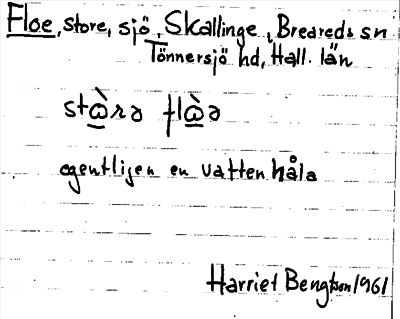 Floe, store, sjö, Skallinge, Breareds sn
Tönnersjö hd, Hall. län
egentligen en vattenhåla
Harriet Bengtson 1961